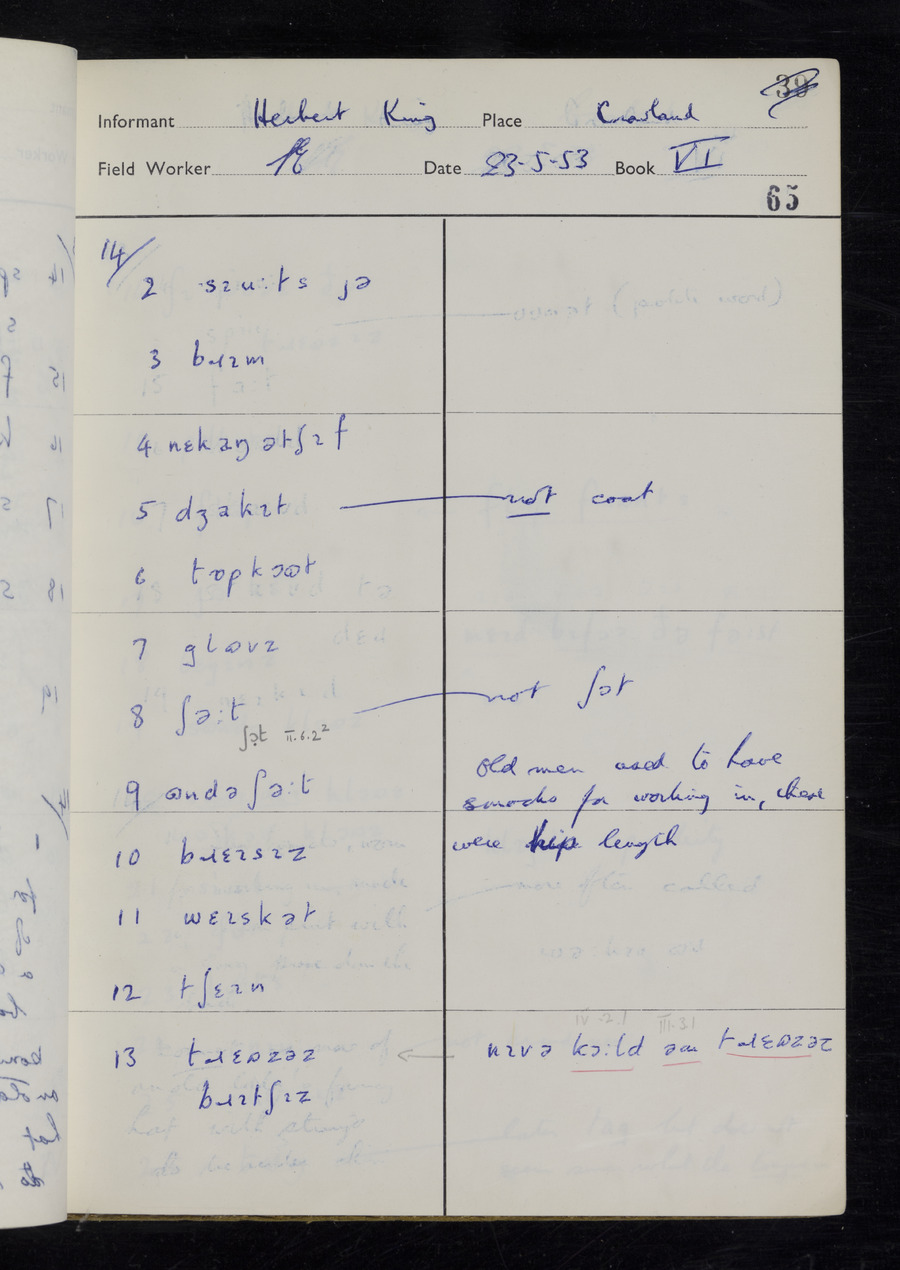 39
Informant Herbert King Place Crowland
Field Worker Date 23-5-53 Book VI
65
14/
2 sɪuːts jə
3 bɹɪm
4 nɛkaŋətʃɪf
5 dʒakɪt not coat
6 tɒpkɔət
7 glʊvz
8 ʃəːt not ʃət
ʃət II.6.2²
9 ʊndəʃəːt old men used to have
smocks for working in, these
were hip length
10 bɹɛɪsɪz
11 wɛɪskət
12 tʃɛɪn
IV.2.1 III.3.1
13 tɹɛʊzəz nɪvə kɔːld əm tɹɛʊzəz
bɹɪtʃɪz